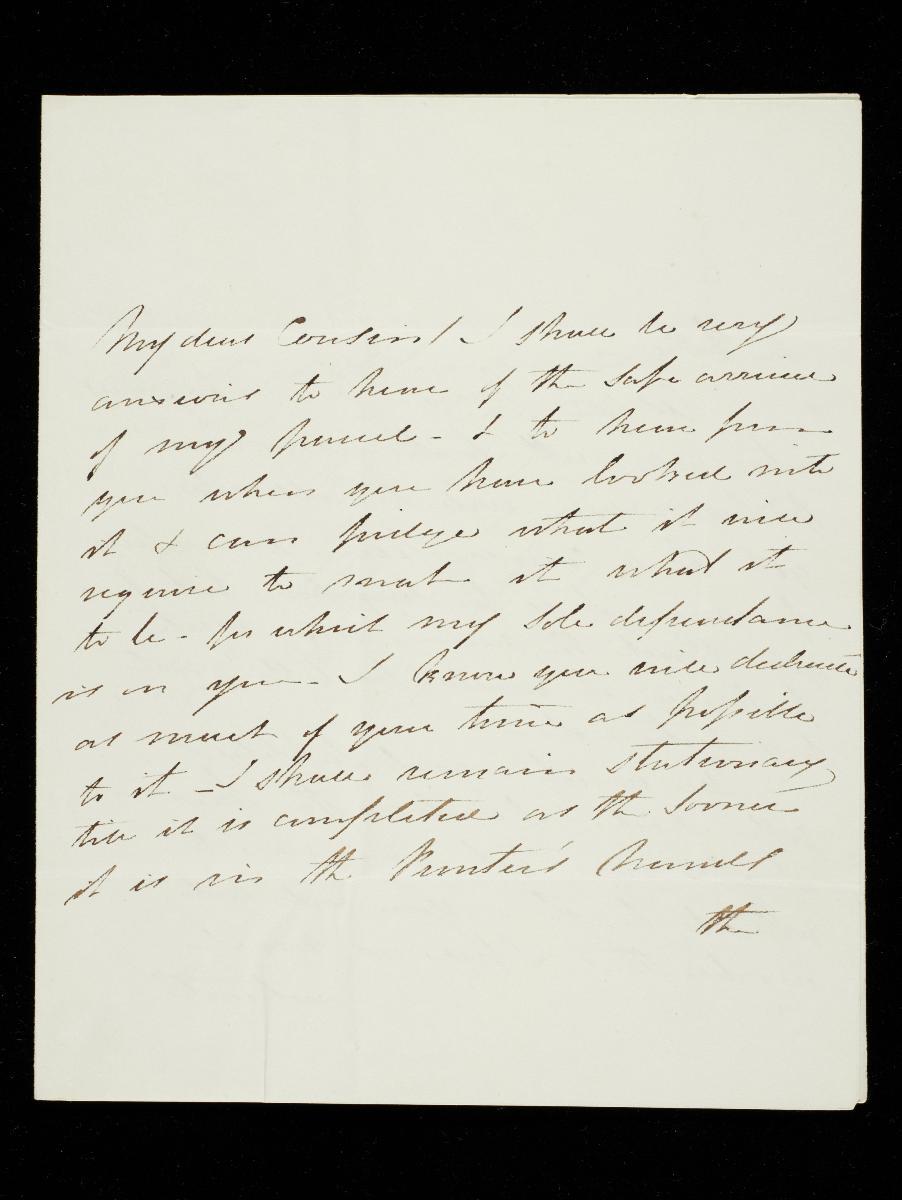 My dear Cousin / I shall be very
anxious to hear of the safe arrival
of my parcel - & to hear from
you when you have looked into
it & can judge what it will
require to make it what it
to be - for which my sole dependance
is on you - I know you will dedicate
as much of your time as possible
to it - I shall remain stationary
till it is completed as the sooner
it is in the Printer's hands
the